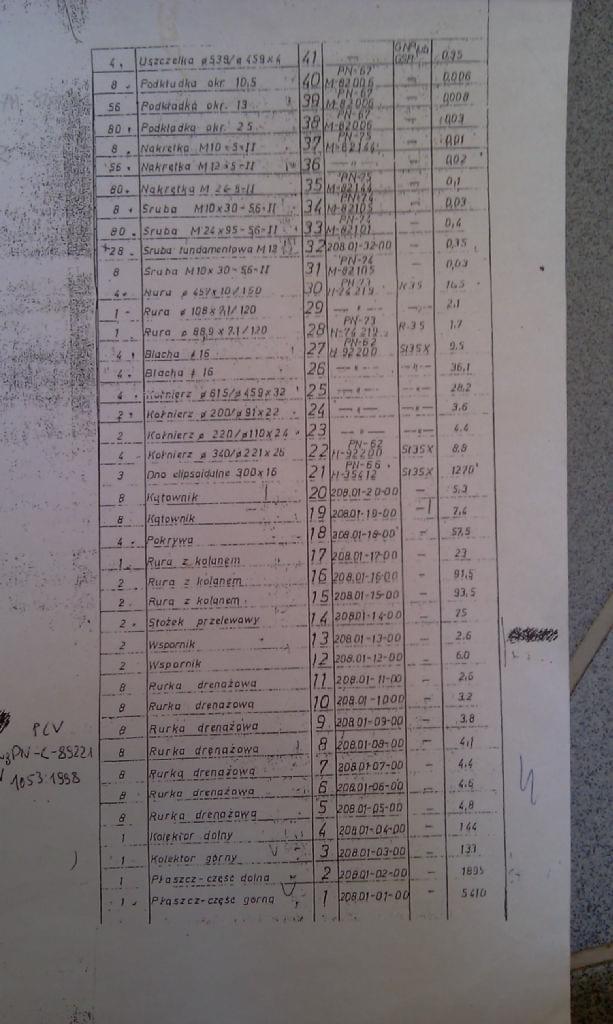 4. Uszczelka ø539/ø459x4 41 —"— GUMA 0,95
8. Podkładka okr. 10,5 40 PN-67 M-82006 — 0,006
56 Podkładka okr. 13 39 PN-67 M-82006 — 0,008
80. Podkładka okr. 25 38 PN-67 M-82006 — 0,03
8. Nakrętka M10-5-II 37 PN-75 M-82144 — 0,01
56. Nakrętka M12-5-II 36 —"— — 0,02
80. Nakrętka M 24-5-II 35 PN-75 M-82144 — 0,1
8 Śruba M10x30-5,6-II 34 PN-74 M-82105 — 0,03
80. Śruba M24x95-5,6-II 33 M-82101 — 0,4
28. Śruba fundamentowa M12 32 208.01-32-00 — 0,35
8 Śruba M10x30-5,6-II 31 PN-74 M-82105 — 0,03
4. Rura ø 457x10/160 30 PN-73 H-74219 R35 16,5
1 - Rura ø 108x7,1/120 29 —"— 2,1
1 Rura ø 88,9x7,1/120 28 PN-73 H-74219 R35 1,7
4 Blacha ≠ 16 27 PN-62 H-92200 St35X 9,5
4. Blacha ≠ 16 26 —"— —"— 36,1
4 Kołnierz ø615/ø459x32 25 —"— —"— 28,2
2. Kołnierz ø200/ø91x22 24 —"— —"— 3,6
2 Kołnierz ø 220/ø110x24 23 —"— —"— 4,4
4 Kołnierz ø 340/ø221x26 22 PN-62 H-92200 St35X 8,8
3 Dno elipsoidalne 300x16 21 PN-66 H-35412 St35X 1270
8 Kątownik 20 208.01-20-00 — 5,3
8 Kątownik 19 208.01-19-00 — 7,4
4. Pokrywa 18 208.01-18-00 — 57,5
1. Rura z kolanem 17 208.01-17-00 — 23
2 Rura z kolanem 16 208.01-16-00 — 91,5
2. Rura z kolanem 15 208.01-15-00 — 93,5
2. Stożek przelewowy 14 208.01-14-00 — 75
2 Wspornik 13 208.01-13-00 — 2.6
2 Wspornik 12 208.01-12-00 — 6,0
8 Rurka drenażowa 11 208.01-11-00 — 2,6
8 Rurka drenażowa 10 208.01-10-00 — 3.2
8 Rurka drenażowa 9 208.01-09-00 — 3,8
8 Rurka drenażowa 8 208.01-08-00 — 4,1
8 Rurka drenażowa 7 208.01-07-00 — 4.4
8 Rurka drenażowa 6 208.01-06-00 — 4.6
8 Rurka drenażowa 5 208.01-05-00 — 4,8
1 Kolektor dolny 4 208.01-04-00 — 144
1 Kolektor górny 3 208.01-03-00 — 133
1 Płaszcz-część dolna 2 208.01-02-00 — 1895
1. Płaszcz-część górna 1 208.01-01-00 — 5410
PCV
wg PN-C-89221
1053:1998